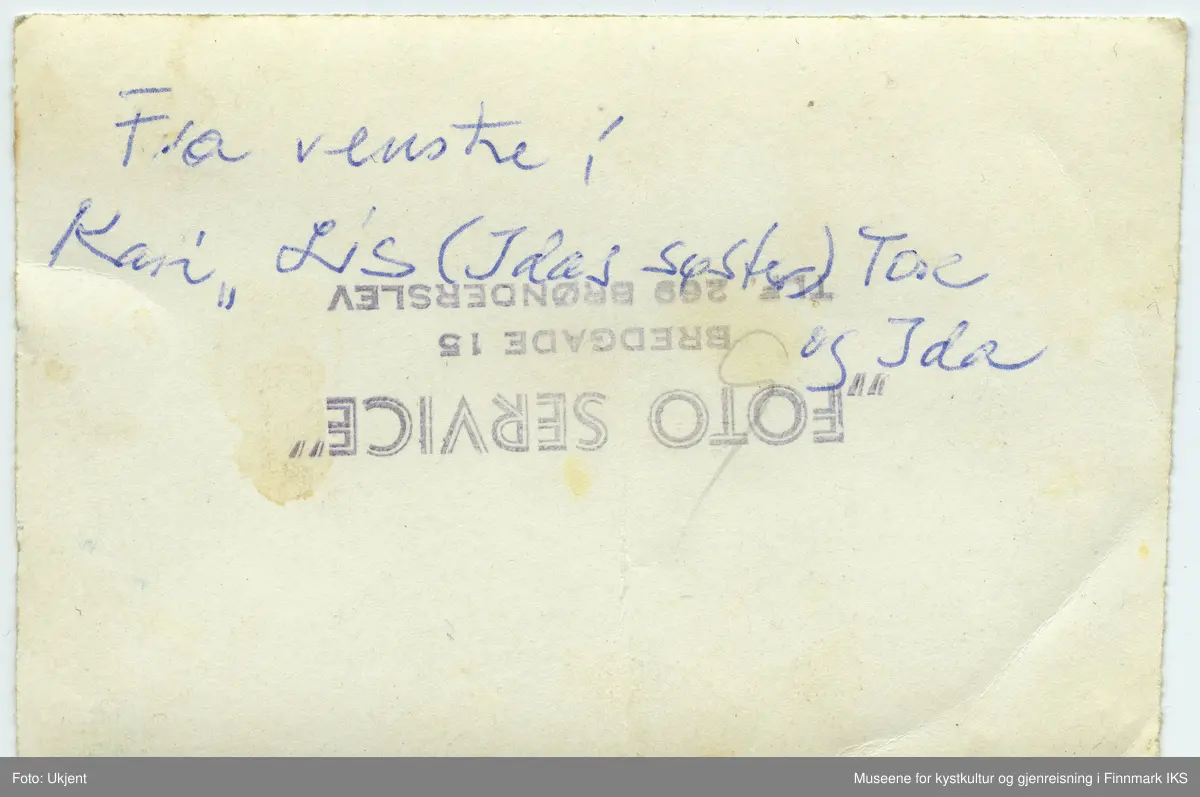 Fra venstre ;
Kari „ Lis (Idas syster) Tore
og Ida
"FOTO SERVICE"
BREDGADE 15
TLF 269 BRØNDERSLEV
Foto: Ukjent
Museene for kystkultur og gjenreisning i Finnmark IKS